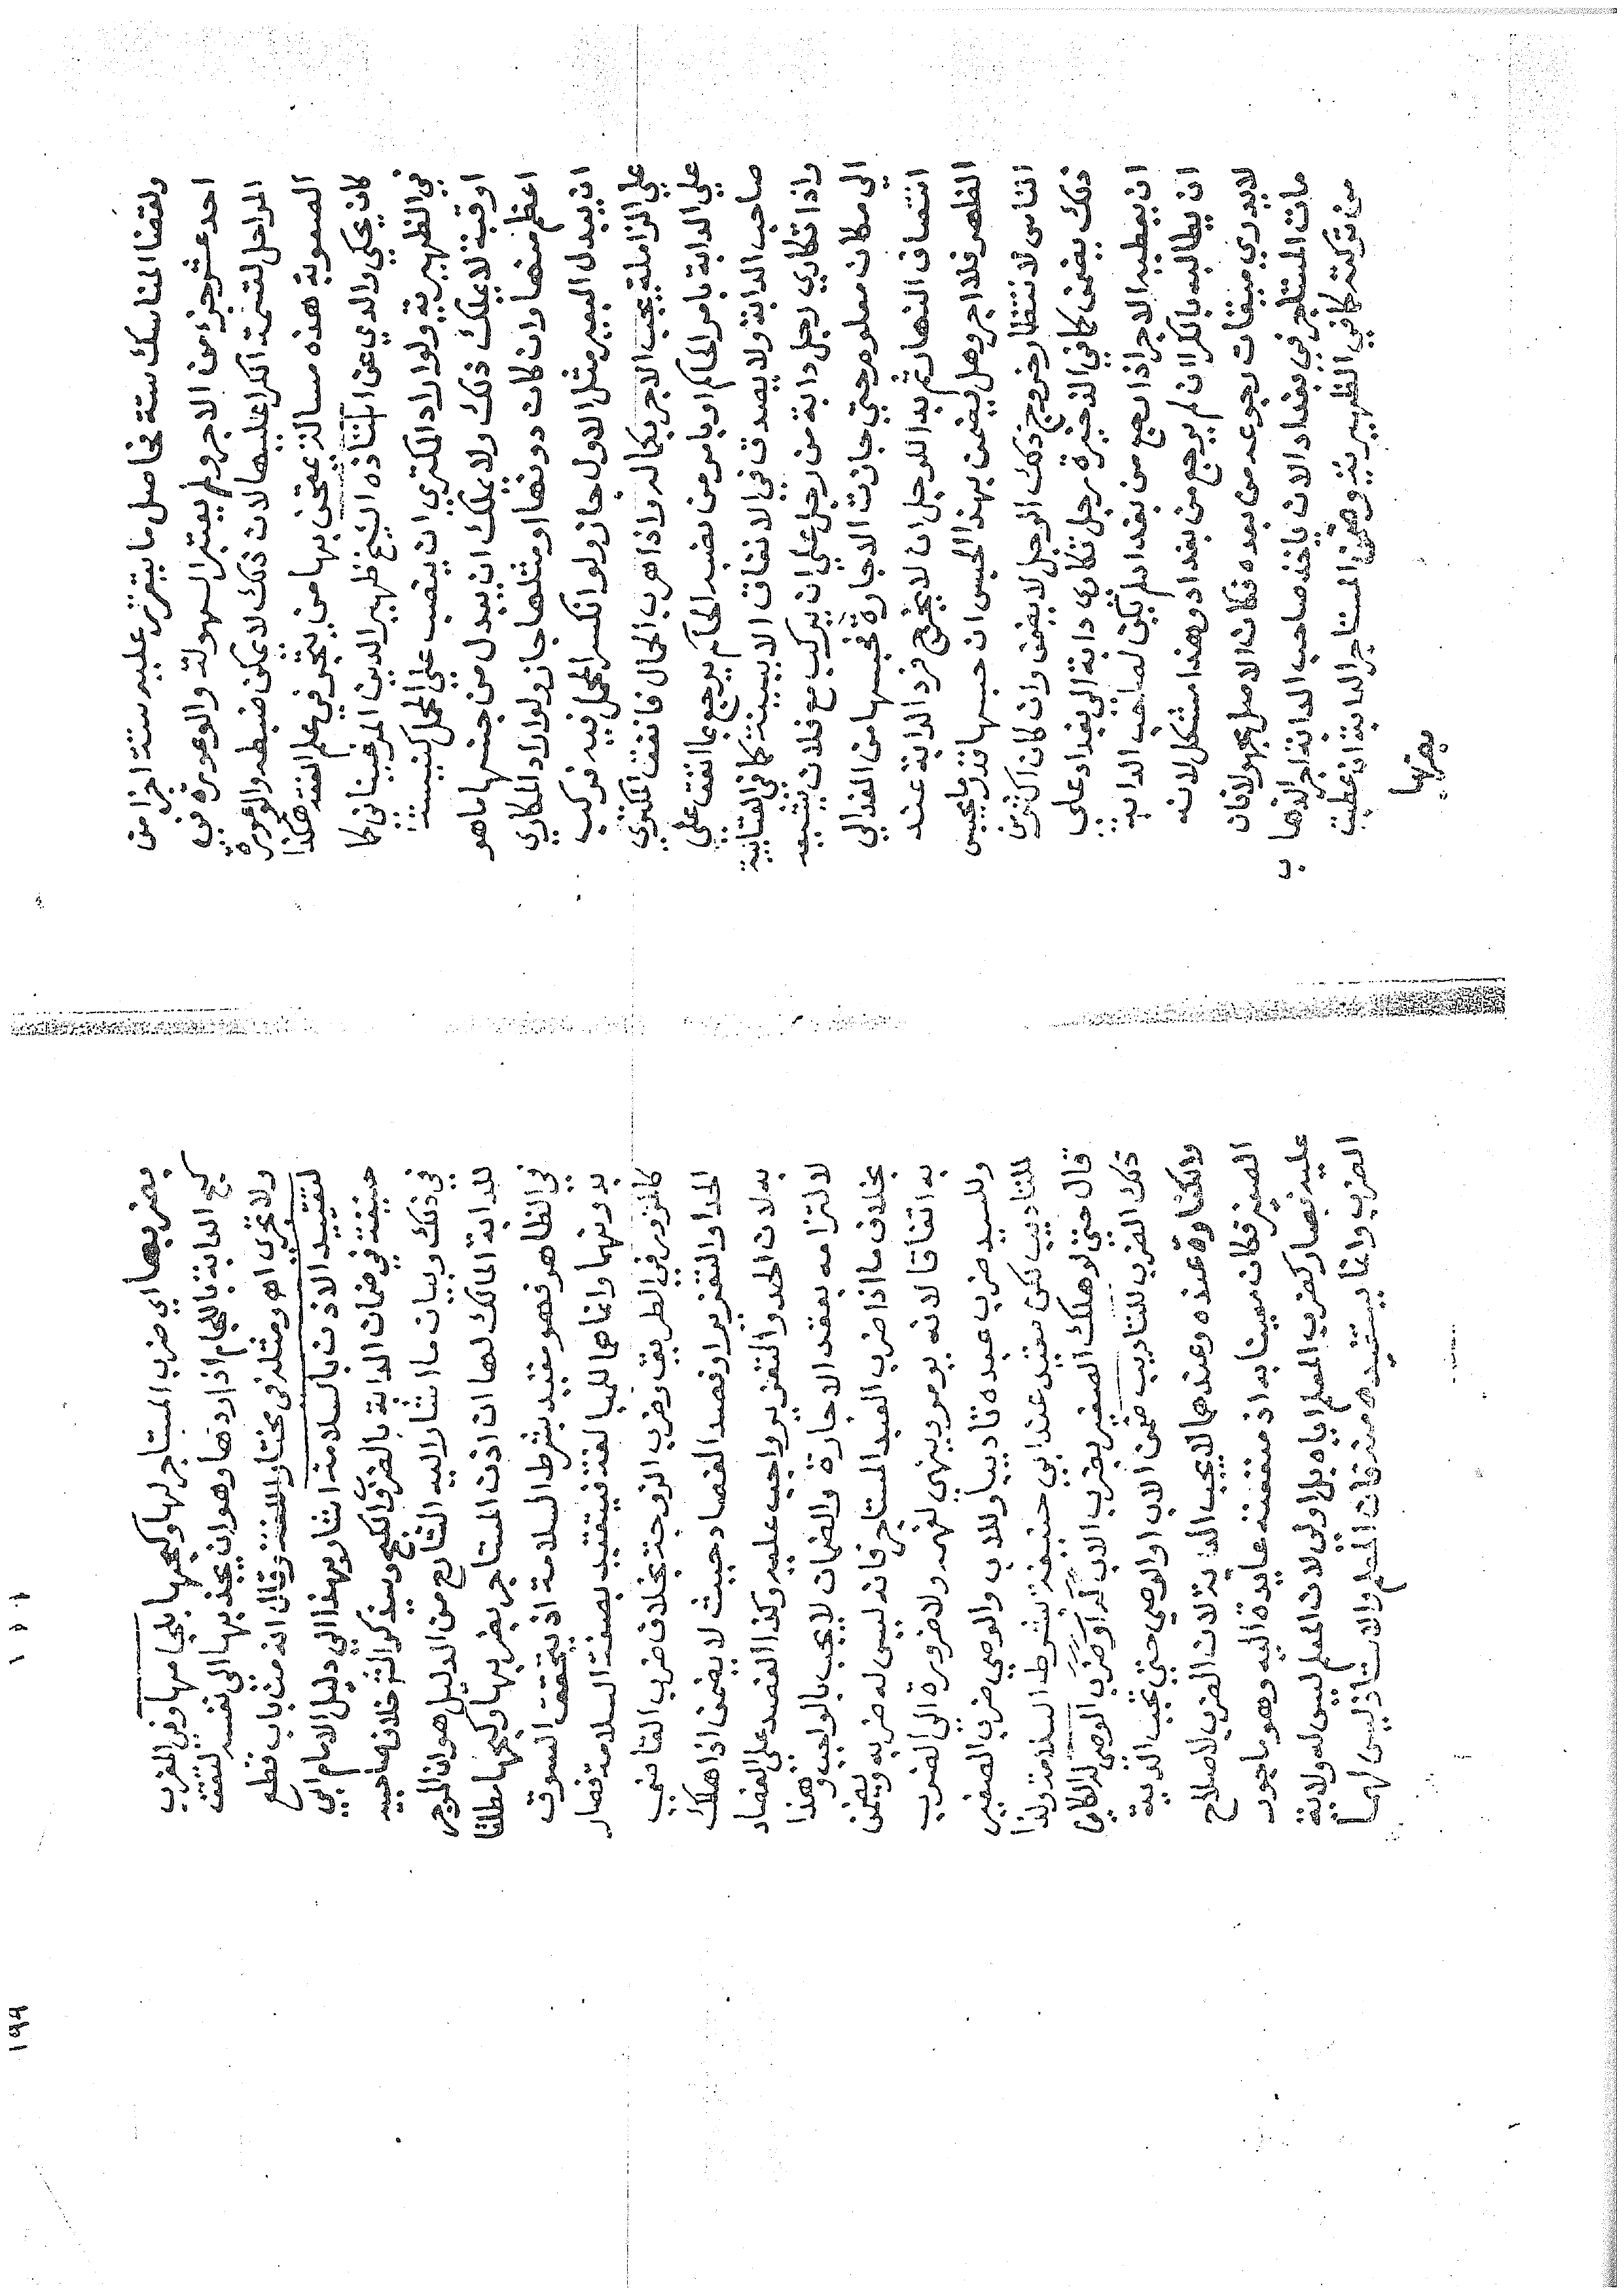 ولقضا المناسك ستة فحاصل ما يتقرر عليه ستة اجزا من
احد عشر جزئ من الاجر ولم يعتبر السهولة والوعورة في
المراحل لقسمة الكرا عليها لان ذلك لا يمكن ضبطه والوعورة
الصعوبة هذه مسالة يمتحن بها من يتبحر في علم الفقه هكذا
كان يحكي والدي عن استاذه الشيخ ظهير الدين المرغيناني كما
في الظهيرية ولو اراد المكتري ان ينصب علي المحمل كنيسة
او قبة لا يملك ذلك ولا يملك ان يبدل من جنسها ما هو
اعظم منها وان كان دونها او مثلها جاز ولو اراد المكاري
ان يبدل البعير مثل الاول جاز ولو انكسر المحمل فيه فركب
علي الزاملة يجب الاجر بكاله واذا هرب الجمال فانفق المكتري
علي الدابة بامر الحاكم او بامر من نصبه الحاكم يرجع بما انفق علي
صاحب الدابة ولا يصدق في الانفاق الا ببينة كما في العتابية
واذا تكاري رجل دابة من رجل علي ان يركب مع فلان يشيعه
الي مكان معلوم حتي جازت الاجارة فحبسها من الغد الي
انتصاف النهار ثم بدا للرجل ان لا يخرج فرد الدابة عند
الظهر فلا اجر وهل يضمن بهذا الحبس ان حبسها قدر ما يحبس
الناس لانتظار خروج ذلك الرجل لا يضمن وان كان اكثر من
ذلك يضمن كما في الذخيرة رجل تكاري دابة الي بغداد علي
ان يعطيه الاجر اذا رجع من بغداد لم يكن لصاحب الدابة
ان يطالبه بالكرا ان لم يرجع من بغداد وهذا مشكل لانه
لا يدري ميقات رجوعه من بعده فكان الاصل مجهولا فان
مات المستاجر في بغداد الان ياخذ صاحب الدابة اجر الذهاب
من تركته كما في الظهيرية وضمن المستاجر الدابة ان عطبت
بضربها
١٩٩
بضربها اي ضرب المستاجر لها وكبحها بلجامها وفي المغرب
كبح الدابة باللجام اذا ردها وهو ان يجذبها الي نفسه لتقف
ولا تجري اهـ ومثله في مختار وقال انه من باب قطع
لتقييد الاذن بالسلامة اشار بهذا الي دليل الامام ابي
حنيفة في ضمان الدابة بالضرب والكبح وسيذكر الشرح خلاف صاحبيه
في ذلك وبيان ما اشار اليه الشارح من الدليل هو ان المؤجر
للدابة المالك لها ان اذن المستاجر بضربها وكبحها مطلقا
في الظاهر فهو مقيد بشرط السلامة اذ يتحقق السوق
بدونهما وانما هما للمبالغة فيتقيد بصفة السلامة فصار
كالمرور في الطريق وضرب الزوجة بخلاف ضرب القاضي
الحد او التعزير او فصد الفصاد حيث لا يضمن اذا هلك
به لان الحد والتعزير واجب عليه وكذا الفصد علي الفصاد
لالتزامه بعقد الاجارة والضمان لا يجب بالواجب وهذا
بخلاف ما اذا ضرب العبد المستاجر فانه ليس له ضربه ويضمن
به اتفاقا لانه يومر وينهي لفهمه ولا ضرورة الي الضرب
وللسيد ضرب عبده تاديبا وللاب والوصي ضرب الصغير
للتاديب لكن مقيد عند ابي حنيفة بشرط السلامة ولذا
قال حتي لو هلك الصغير بضرب الاب له او ضرب الوصي له الكائن
ذلك الضرب للتاديب ضمن الاب او الوصي حتي تجب الدية
والكفارة عنده وعندهما لا يجب الدية لان الضرب لاصلاح
الصغير فكان معينا به اذ منفعته عايدة اليه وهو ماجور
عليه فصار كضرب المعلم اياه بل اولي لان المعلم ليس له ولاية
الضرب وانما يستفيده منه فان المعلم والاستاذ ليس لهما